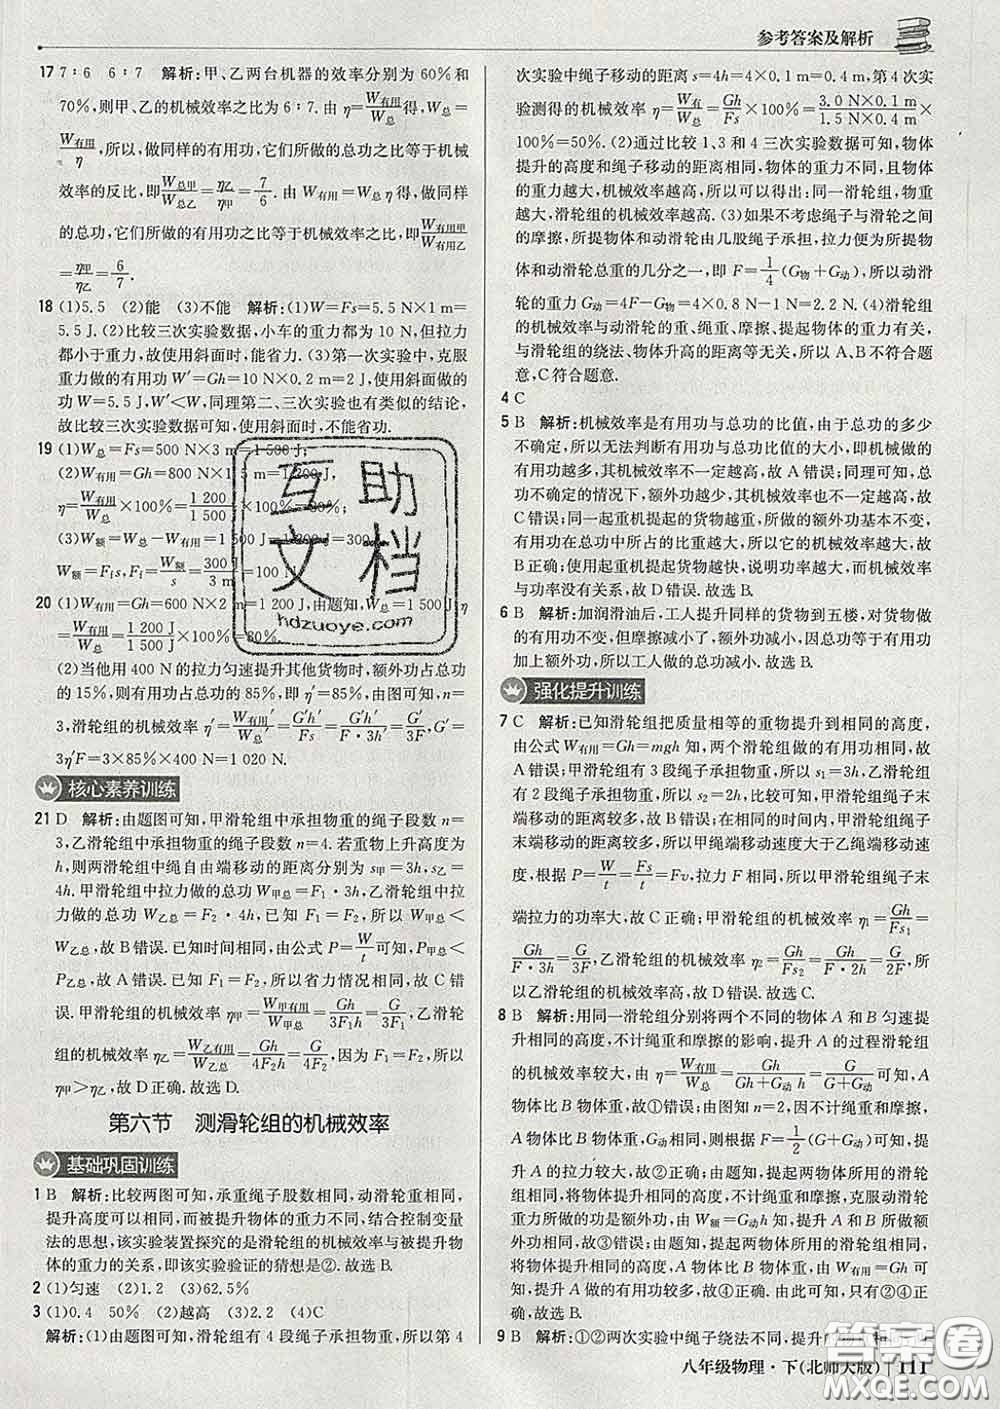 参考答案及解析
17 7∶6 6∶7 解析:甲、乙两台机器的效率分别为60%和
70%,则甲、乙的机械效率之比为6∶7.由η=W有用/W总,W总=
W有用/η,所以,做同样的有用功,它们所做的总功之比等于机械
效率的反比,即W总甲/W总乙=η乙/η甲=7/6.由W有用=W总η得,做同样
的总功,它们所做的有用功之比等于机械效率之比,即W有用甲/W有用乙
=η甲/η乙=6/7.
18 (1)5.5 (2)能 (3)不能 解析:(1)W=Fs=5.5 N×1 m=
5.5 J.(2)比较三次实验数据,小车的重力都为10 N,但拉力
都小于重力,故使用斜面时,能省力.(3)第一次实验中,克服
重力做的有用功W′=Gh=10 N×0.2 m=2 J,使用斜面做的
功W=5.5 J,W′<W,同理第二、三次实验也有类似的结论,
故比较三次实验数据可知,使用斜面时,不能省功.
19 (1)W总=Fs=500 N×3 m=1 500 J;
(2)W有用=Gh=800 N×1.5 m=1 200 J,
η=W有用/W总×100%=1 200 J/1 500 J×100%=80%;
(3)W额=W总-W有用=1 500 J-1 200 J=300 J,
W额=F₁s,F₁=W额/s=300 J/3 m=100 N.
20 (1)W有用=Gh=600 N×2 m=1 200 J,由题知,W总=1 500 J,η
=W有用/W总×100%=1 200 J/1 500 J×100%=80%.
(2)当他用400 N的拉力匀速提升其他货物时,额外功占总功
的15%,则有用功占总功的85%,即η′=85%,由图可知,n
=3,滑轮组的机械效率η′=W有用′/W总′=G′h′/Fs=G′h′/F·3h′=G′/3F,G′=
3η′F=3×85%×400 N=1 020 N.
核心素养训练
21 D 解析:由题图可知,甲滑轮组中承担物重的绳子段数n=
3,乙滑轮组中承担物重的绳子段数n=4.若重物上升高度为
h,则两滑轮组中绳自由端移动的距离分别为s甲=3h,s乙=
4h.甲滑轮组中拉力做的总功W甲总=F₁·3h,乙滑轮组中拉
力做的总功W乙总=F₂·4h,已知F₁=F₂,所以W甲总<
W乙总,故B错误.已知时间相同,由公式P=W/t可知,P甲总<
P乙总,故A错误.已知F₁=F₂,所以省力情况相同,故C错
误.甲滑轮组的机械效率η甲=W甲有用/W甲总=Gh/3F₁h=G/3F₁,乙滑轮
组的机械效率η乙=W乙有用/W乙总=Gh/4F₂h=G/4F₂,因为F₁=F₂,所以
η甲>η乙,故D正确.故选D.
第六节 测滑轮组的机械效率
基础巩固训练
1 B 解析:比较两图可知,承重绳子股数相同,动滑轮重相同,
提升高度可以相同,而被提升物体的重力不同,结合控制变量
法的思想,该实验装置探究的是滑轮组的机械效率与被提升物
体的重力的关系,即该实验验证的猜想是②.故选B.
2 (1)匀速 (2)1.2 (3)62.5%
3 (1)0.4 50% (2)越高 (3)2.2 (4)C
解析:(1)由题图可知,滑轮组有4段绳子承担物重,所以第4
次实验中绳子移动的距离s=4h=4×0.1 m=0.4 m,第4次实
验测得的机械效率η=W有/W总=Gh/Fs×100%=3.0 N×0.1 m/1.5 N×0.4 m×
100%=50%.(2)通过比较1、3和4三次实验数据可知,物体
提升的高度和绳子移动的距离相同,物体的重力不同,且物体
的重力越大,机械效率越高.所以可以得出:同一滑轮组,物重
越大,滑轮组的机械效率越高.(3)如果不考虑绳子与滑轮之间
的摩擦,所提物体和动滑轮由几股绳子承担,拉力便为所提物
体和动滑轮总重的几分之一,即F=1/4(G物+G动),所以动滑
轮的重力G动=4F-G物=4×0.8 N-1 N=2.2 N.(4)滑轮组
的机械效率与动滑轮的重、绳重、摩擦、提起物体的重力有关,
与滑轮组的绕法、物体升高的距离等无关,所以A、B不符合题
意,C符合题意.
4 C
5 B 解析:机械效率是有用功与总功的比值,由于总功的多少
不确定,所以无法判断有用功与总功比值的大小,即机械做的
有用功越多,其机械效率不一定越高,故A错误;同理可知,总
功不确定的情况下,额外功越少,其机械效率不一定越高,故
C错误;同一起重机提起的货物越重,所做的额外功基本不变,
有用功在总功中所占的比重越大,所以其机械效率越大,故
B正确;使用起重机提起货物越快,说明功率越大,而机械效率
与功率没有关系,故D错误.故选B.
6 B 解析:加润滑油后,工人提升同样的货物到五楼,对货物做
的有用功不变,但摩擦减小了,额外功减小,因总功等于有用功
加上额外功,所以工人做的总功减小.故选B.
强化提升训练
7 C 解析:已知滑轮组把质量相等的重物提升到相同的高度,
由公式W有用=Gh=mgh知,两个滑轮组做的有用功相同,故
A错误;甲滑轮组有3段绳子承担物重,所以s₁=3h,乙滑轮
组有2段绳子承担物重,所以s₂=2h,比较可知,甲绳子末端
移动的距离较多,故B错误;在相同的时间内,甲滑轮组绳子末
端移动的距离较多,所以甲绳端移动速度大于乙绳端移动速
度,根据P=W/t=Fs/t=Fv,拉力F相同,所以甲滑轮组绳子末
端拉力的功率大,故C正确;甲滑轮组的机械效率η₁=Gh/Fs₁=
Gh/F·3h=G/3F,乙滑轮组的机械效率η₂=Gh/Fs₂=Gh/F·2h=G/2F,所
以乙滑轮组的机械效率高,故D错误.故选C.
8 B 解析:用同一滑轮组分别将两个不同的物体A和B匀速提
升相同的高度,不计绳重和摩擦的影响,提升A的过程滑轮组
的机械效率较大,由η=W有用/W总=Gh/Gh+G动h=G/G+G动知,A物
体比B物体重,故①错误;由图知n=2,因不计绳重和摩擦,
A物体比B物体重,G动相同,由F=1/2(G+G动)知,提升A比
提升B的拉力大,故②正确;由题知,提起两物体所用的滑轮
组相同,将物体提升相同的高度,不计绳重和摩擦,克服动滑轮
重力所做的功是额外功,由W额=G动h知,提升A和B所做额
外功相同,故③错误;由题知,提起两物体所用的滑轮组相同,
将物体提升相同的高度,A物体比B物体重,由W有用=Gh可
知,提升A做的有用功较多,故④正确.由此可知,只有②④正
确,故选B.
9 B 解析:①②两次实验中绳子绕法不同,提升的
八年级物理·下(北师大版) 111
互助
文档
hdzuoye.com
答案圈
MXQE.COM